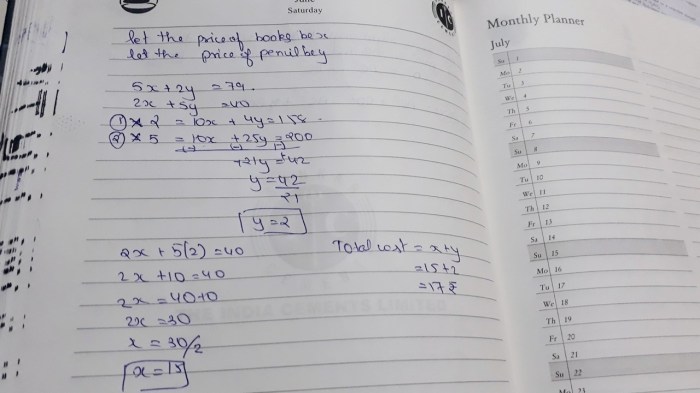 June
Saturday
let the price of books be x
let the price of pencil be y
5x + 2y = 79.
2x + 5y = 40
① × 2 = 10x + 4y = 158.
② × 5 = 10x + 25y = 200
(-) (-) (-)
+21y = +42
y = 42
21
y = 2
2x + 5(2) = 40
2x + 10 = 40
2x = 40-10
2x = 30
x = 30/2
x = 15
Total cost = x+y
= 15+2
= 17 ₹
INDIA CEMENTS LIMITED
Monthly Planner
July
Su 1
Mo 2
Tu 3
We 4
Th 5
Fr 6
Sa 7
Su 8
Mo 9
Tu 10
We 11
Th 12
Fr 13
Sa 14
Su 15
Mo 16
Tu 17
We 18
Th 19
Fr 20
Sa 21
Su 22
Mo 23